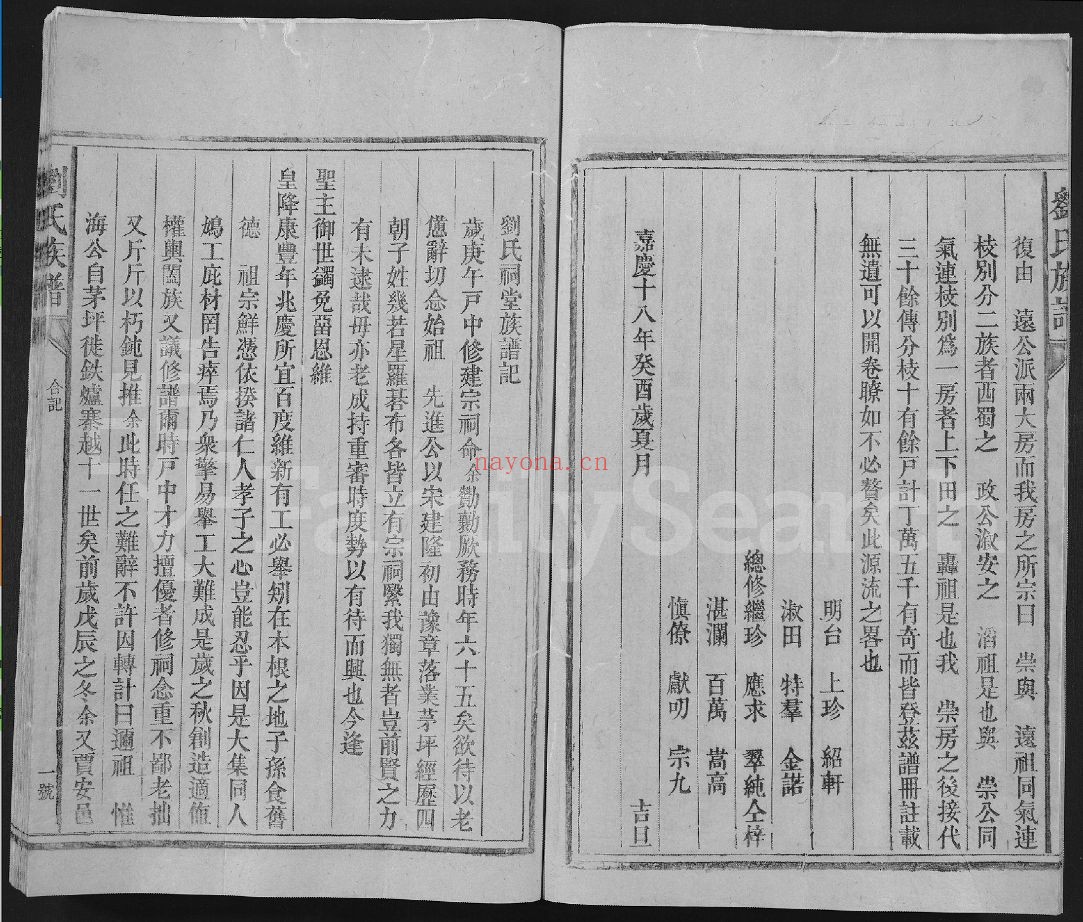 劉氏族譜
復由 遠公派兩大房而我房之所宗曰 崇與 遠祖同氣連
枝別分二族者西蜀之 政公淑安之 滔祖是也與 崇公同
氣連枝別爲一房者上下田之 轟祖是也我 崇房之後接代
三十餘傳分枝十有餘戸計丁萬五千有奇而皆登茲譜冊註載
無遺可以開卷瞭如不必贅矣此源流之畧也
明台 上珍 紹軒
淑田 特羣 金諾
總修繼珍 應求 翠純仝梓
湛瀾 百萬 嵩高
愼僚 獻叨 宗九
嘉慶十八年癸酉歲夏月 吉旦
劉氏祠堂族譜記
歲庚午戸中修建宗祠命余勷勷厥務時年六十五矣欲待以老
憊辭切念始祖 先進公以宋建隆初由豫章落業茅坪經歷四
朝子姓幾若星羅碁布各皆立有宗祠緊我獨無者豈前賢之力
有未逮哉毋亦老成持重審時度勢以有待而興也今逢
聖主御世蠲免啚恩維
皇降康豐年兆慶所宜百度維新有工必舉矧在本根之地子孫食舊
德 祖宗鮮憑依揆諸仁人孝子之心豈能忍乎因是大集同人
鳩工庇材罔告瘁焉乃衆擎易舉工大難成是歲之秋創造適值
權輿闔族又議修譜爾時戸中才力擅優者修祠念重不鄙老拙
又斤斤以朽鈍見推余此時任之難辭不許因轉計曰適祖 惟
海公自茅坪徙鉄爐寨越十一世矣前歲戊辰之冬余又賈安邑
劉氏族譜
合記
一號
nayona.cn
FamilySearch